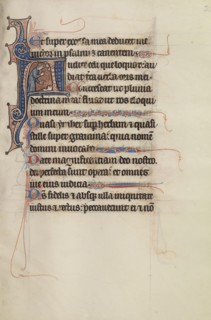 Et super exc̄sa mea deducet me
uictor in psalmis canentem.
Audite celi que loquor: au
diat terra uerba oris mei
Concrescat ut pluuia
doctrina mea: fluat ut ros eloqui
um meum
Quasi ymber sup herbam et quasi
stille super gramina: quia nomē
domini inuocabo
Date magnificentiam deo nostro:
dei perfecta sunt opera et omnes
uie eius iudicia
Ds fidelis et absque ulla iniquitate
iustus et rectus: peccauerunt ei et nō